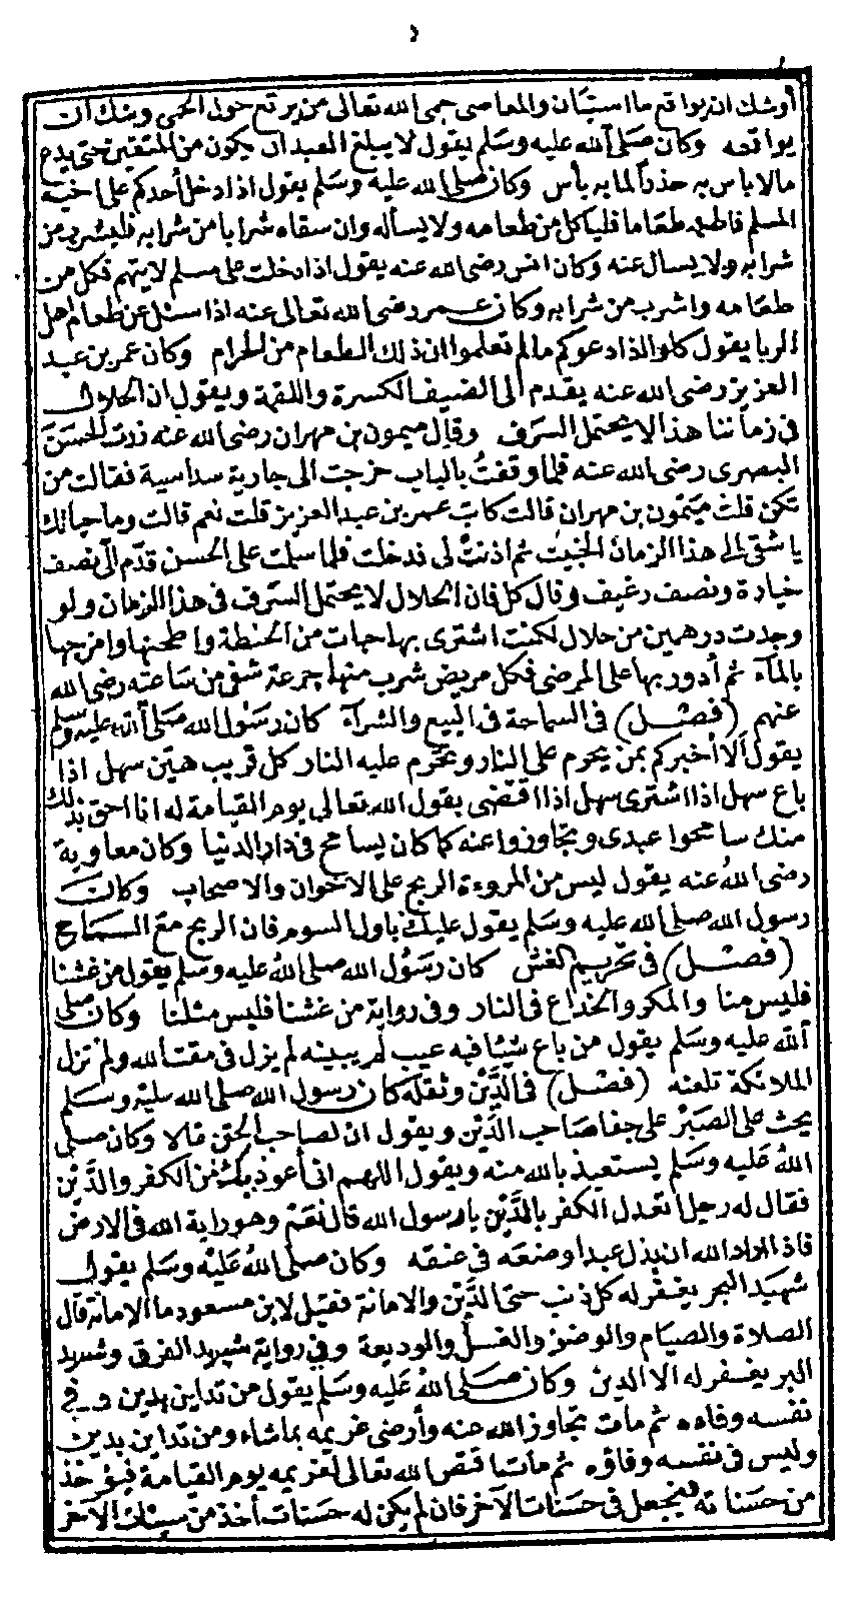 ٤
أوشك ان يواقع ما استبان والمعاصى حمى الله تعالى من يرتع حول الحمى يوشك ان
يواقعه وكان صلى الله عليه وسلم يقول لا يبلغ العبد ان يكون من المتقين حتى يدع
مالا باس به حذراً لما به بأس وكان صلى الله عليه وسلم يقول اذا دخل أحدكم على اخيه
المسلم فاطعمه طعاما فلياكل من طعامه ولا يسأله وان سقاه شرابا من شرابه فليشرب من
شرابه ولا يسال عنه وكان انس رضى الله عنه يقول اذا دخلت على مسلم لا يتهم فكل من
طعامه واشرب من شرابه وكان عمر رضى الله تعالى عنه اذا سئل عن طعام اهل
الربا يقول كلوا اذا دعوكم مالم تعلموا ان ذلك الطعام من الحرام وكان عمر بن عبد
العزيز رضى الله عنه يقدم الى الضيف الكسرة واللقمة ويقول ان الحلال
فى زماننا هذا لا يحتمل السرف وقال ميمون بن مهران رضى الله عنه زرت الحسن
البصرى رضى الله عنه فلما وقفت بالباب خرجت الى جارية سداسية فقالت من
تكن قلت ميمون بن مهران قالت كاتب عمر بن عبد العزيز قلت نعم قالت وما حياتك
يا شقى الى هذا الزمان الخبيث ثم اذنت لى فدخلت فلما سلمت على الحسن قدم الى نصف
خيارة ونصف رغيف وقال كل فان الحلال لا يحتمل السرف فى هذا الزمان ولو
وجدت درهمين من حلال لكنت اشترى بها حبات من الحنطة واطحنها وامزجها
بالمآء ثم أدور بها على المرضى فكل مريض شرب منها جرعة شفى من ساعته رضى الله
عنهم (فصل) فى السماحة فى البيع والشرآء كان رسول الله صلى الله عليه وسلم
يقول ألا أخبركم بمن يحرم على النار وتحرم عليه النار كل قريب هين سهل اذا
باع سهل اذا اشترى سهل اذا اقتضى يقول الله تعالى يوم القيامة له انا احق بذلك
منك سامحوا عبدى وتجاوزوا عنه كما كان يسامح فى دار الدنيا وكان معاوية
رضى الله عنه يقول ليس من المروءة الربح على الاخوان والاصحاب وكان
رسول الله صلى الله عليه وسلم يقول عليك باول السوم فان الربح مع السماح
(فصل) فى تحريم الغش كان رسول الله صلى الله عليه وسلم يقول من غشنا
فليس منا والمكر والخداع فى النار وفى رواية من غشنا فليس مثلنا وكان صلى
الله عليه وسلم يقول من باع شيئا فيه عيب لم يبينه لم يزل فى مقت الله ولم تزل
الملائكة تلعنه (فصل) فى الدَّيْن وثقله كان رسول الله صلى الله عليه وسلم
يحث على الصبر على جفا صاحب الدَّيْن ويقول ان لصاحب الحق مقالا وكان صلى
الله عليه وسلم يستعيذ بالله منه ويقول اللهم انى أعوذ بك من الكفر والدَّيْن
فقال له رجل أتعدل الكفر بالدَّيْن يا رسول الله قال نعم وهو راية الله فى الارض
فاذا اراد الله ان يذل عبدا وضعه فى عنقه وكان صلى الله عليه وسلم يقول
شهيد البحر يغفر له كل ذنب حتى الدَّيْن والامانة فقيل لابن مسعود ما الامانة قال
الصلاة والصيام والوضوء والغسل والوديعة وفى رواية شهيد الغرق وشهيد
البر يغفر له الا الدين وكان صلى الله عليه وسلم يقول من تداين بدين وفى
نفسه وفاءه ثم مات تجاوز الله عنه وأرضى غريمه بماشاء ومن تداين بدين
وليس فى نفسه وفاؤه ثم مات اقتص الله تعالى لغريمه يوم القيامة فيؤخذ
من حسناته فيجعل فى حسنات الآخر فان لم يكن له حسنات أخذ من سيئات الآخر